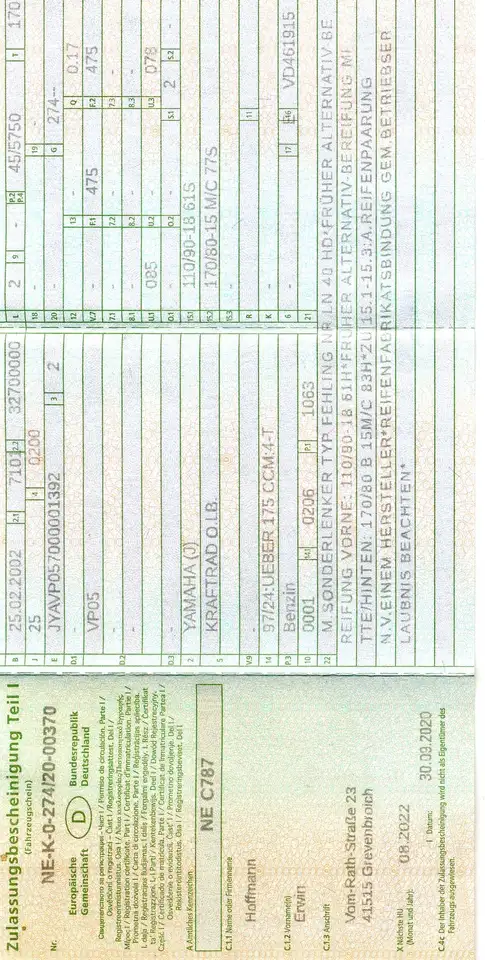 Zulassungsbescheinigung Teil I
(Fahrzeugschein)
Nr. NE-K-0-274/20-00370
Europäische Gemeinschaft
D
Bundesrepublik Deutschland
A Amtliches Kennzeichen
NE C787
C.1.1 Name oder Firmenname
Hoffmann
C.1.2 Vorname(n)
Erwin
C.1.3 Anschrift
Vom-Rath-Straße 23
41515 Grevenbroich
X Nächste HU (Monat und Jahr):
08.2022
I Datum:
30.09.2020
C.4c Der Inhaber der Zulassungsbescheinigung wird nicht als Eigentümer des Fahrzeugs ausgewiesen.
B 25.02.2002 2.1 7101 2.2 32700000
J 25 4 0200
E JYAVP057000001392 3 2
D.1 -
VP05
D.2
-
D.3 -
2 YAMAHA (J)
5 KRAFTRAD O.LB.
-
V.9 -
14 97/24:UEBER 175 CCM:4-T
P.3 Benzin
10 0001 14.1 0206 P.1 1063
L 2 9 - P.2 P.4 45/5750 T 170
18 - 19 -
20 - G 274--
12 - 13 - Q 0.17
V.7 - F.1 475 F.2 475
7.1 - 7.2 - 7.3 -
8.1 - 8.2 - 8.3 -
U.1 085 U.2 - U.3 078
O.1 - O.2 - S.1 2 S.2 -
15.1 110/90-18 61S
15.2 170/80-15 M/C 77S
15.3 -
R - 11 -
K -
6 - 17 16 VD461915
21 -
22 M.SONDERLENKER TYP FEHLING NR LN 40 HD*FRÜHER ALTERNATIV-BE
REIFUNG VORNE: 110/90-18 61H*FRÜHER ALTERNATIV-BEREIFUNG MI
TTE/HINTEN: 170/80 B 15M/C 83H*ZU 15.1-15.3:A.REIFENPAARUNG
N.V.EINEM HERSTELLER*REIFENFABRIKATSBINDUNG GEM.BETRIEBSER
LAUBNIS BEACHTEN*